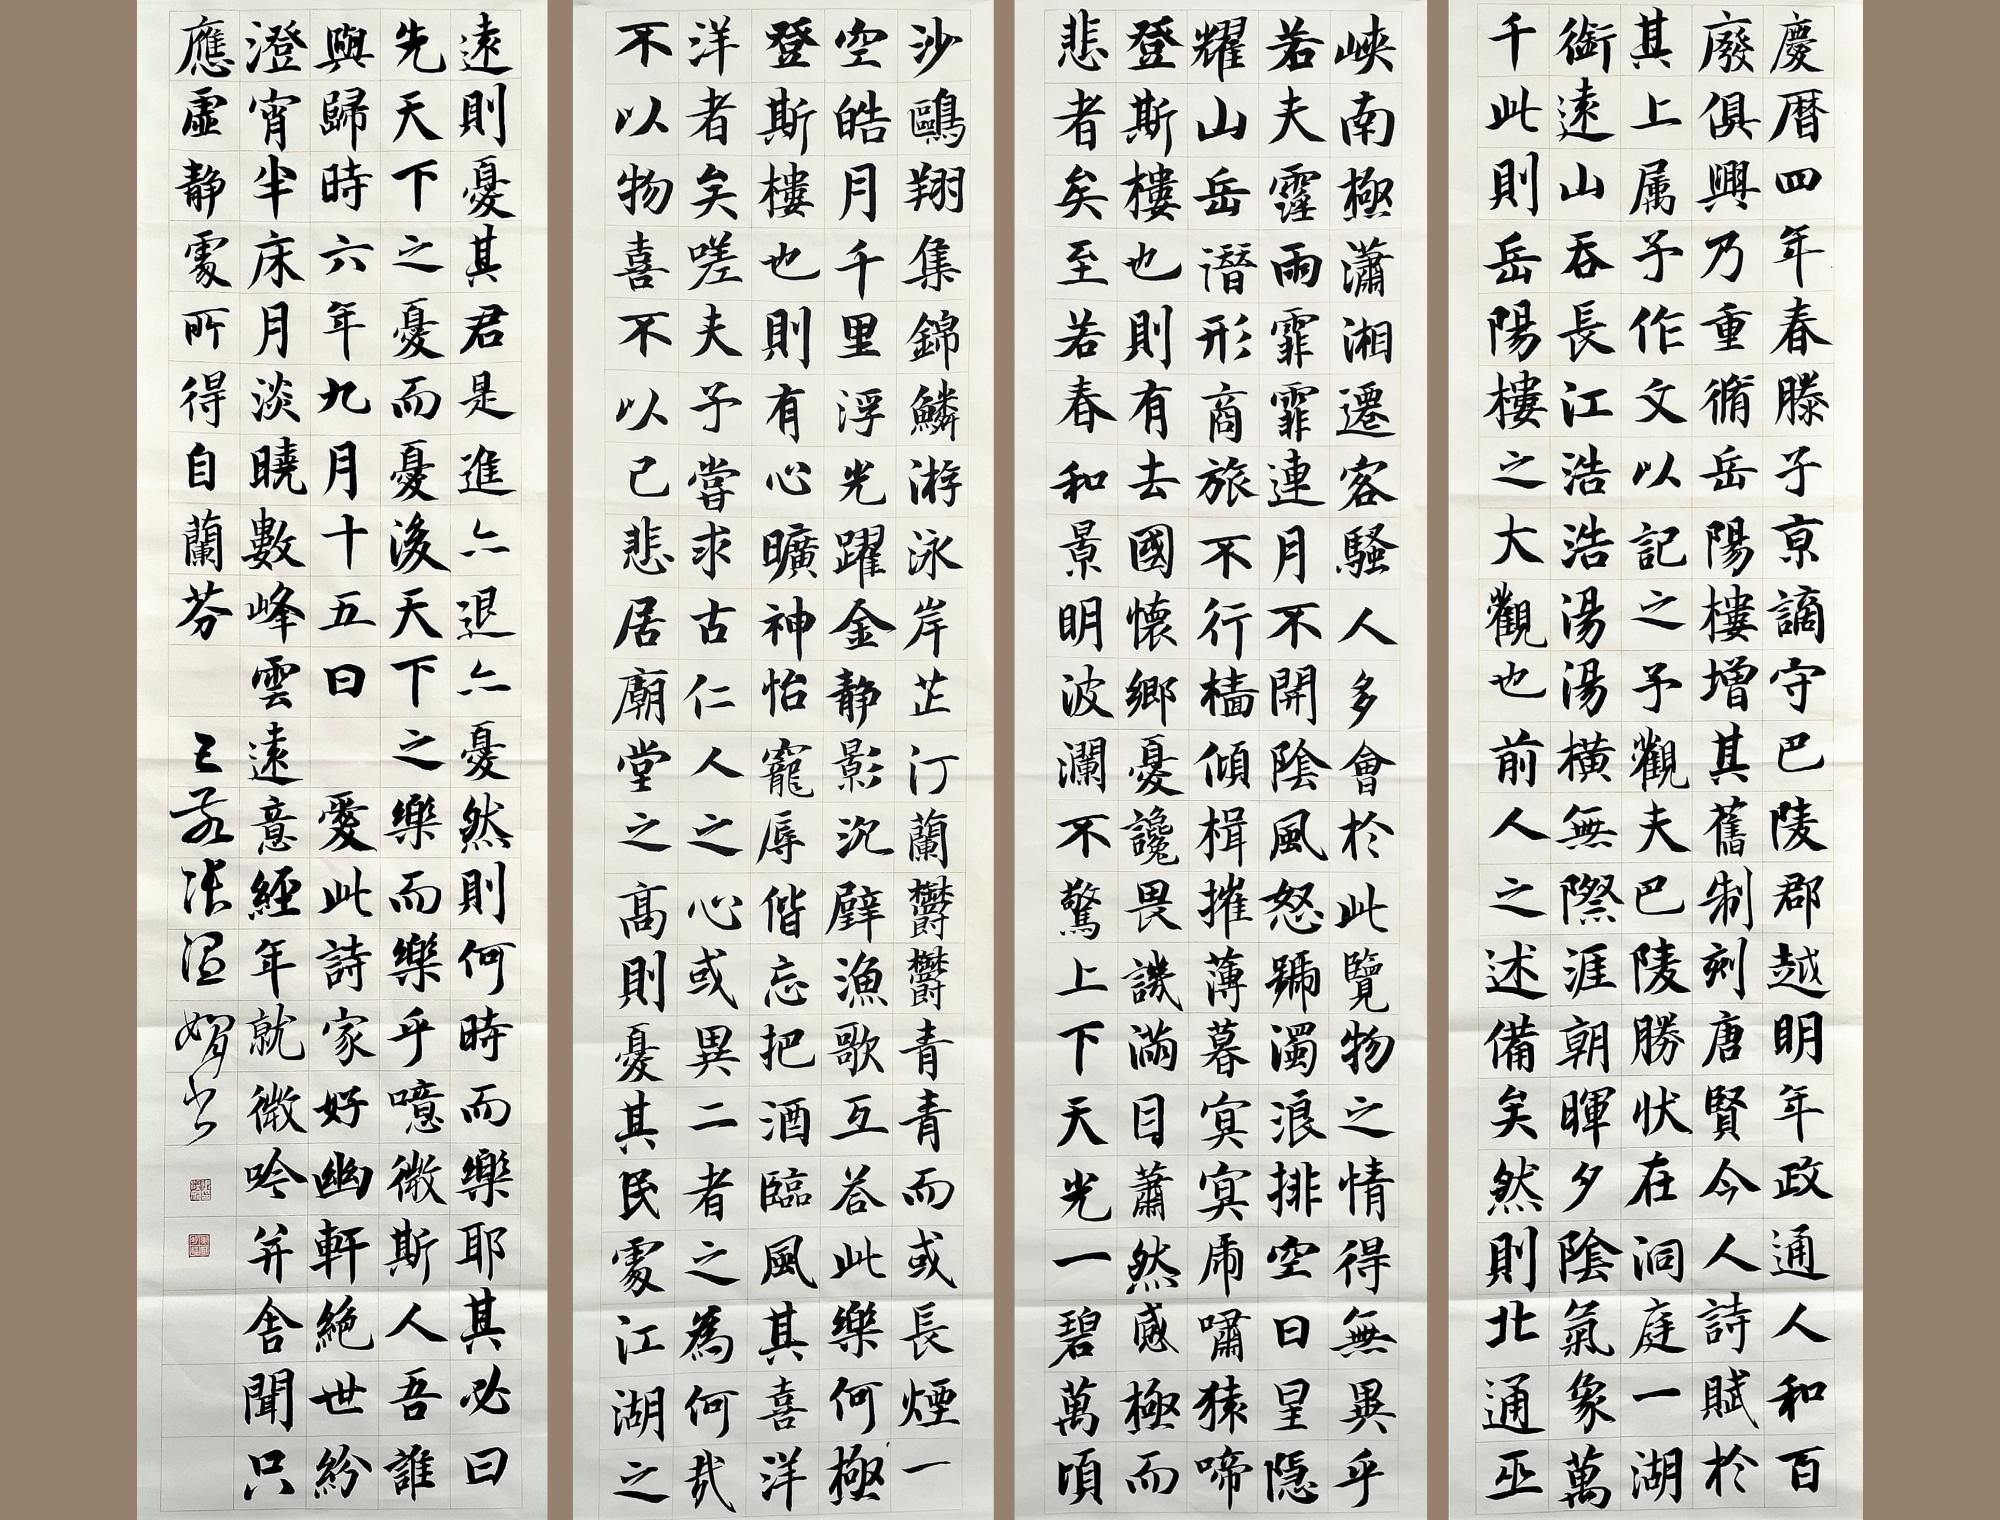 慶暦四年春滕子亰謫守巴陵郡越明年政通人和百
廢俱興乃重脩岳陽樓增其舊制刻唐賢今人詩賦於
其上属予作文以記之予觀夫巴陵勝状在洞庭一湖
銜遠山吞長江浩浩湯湯橫無際涯朝暉夕陰氣象萬
千此則岳陽樓之大觀也前人之述備矣然則北通巫
峽南極瀟湘遷客騷人多會於此覽物之情得無異乎
若夫霪雨霏霏連月不開陰風怒號濁浪排空日星隱
耀山岳潛形商旅不行檣傾楫摧薄暮冥冥虎嘯猿啼
登斯樓也則有去國懷鄉憂讒畏譏滿目蕭然感極而
悲者矣至若春和景明波瀾不驚上下天光一碧萬頃
沙鷗翔集錦鱗游泳岸芷汀蘭鬱鬱青青而或長煙一
空皓月千里浮光躍金静影沉璧漁歌互荅此樂何極
登斯樓也則有心曠神怡寵辱偕忘把酒臨風其喜洋
洋者矣嗟夫予嘗求古仁人之心或異二者之為何哉
不以物喜不以己悲居廟堂之高則憂其民處江湖之
遠則憂其君是進亦退亦憂然則何時而樂耶其必曰
先天下之憂而憂後天下之樂而樂乎噫微斯人吾誰
與歸時六年九月十五日 愛此詩家好幽軒絕世紛
澄宵半床月淡曉數峰雲遠意經年就微吟并舍聞只
應虛静處所得自蘭芬